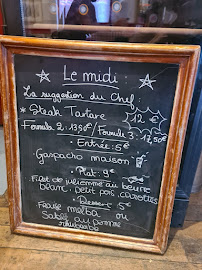 Le midi :
La suggestion du Chef
* Steak Tartare 12 €
Formule 2: 13,50 € / Formule 3: 17,50€
• Entrée: 5€
Gaspacho maison
• Plat: 9€
Filet de julienne au beurre
blanc, petit pois carottes
• Dessert 5€
Fraise melba ou
Sablé au pomme
rhubarbe